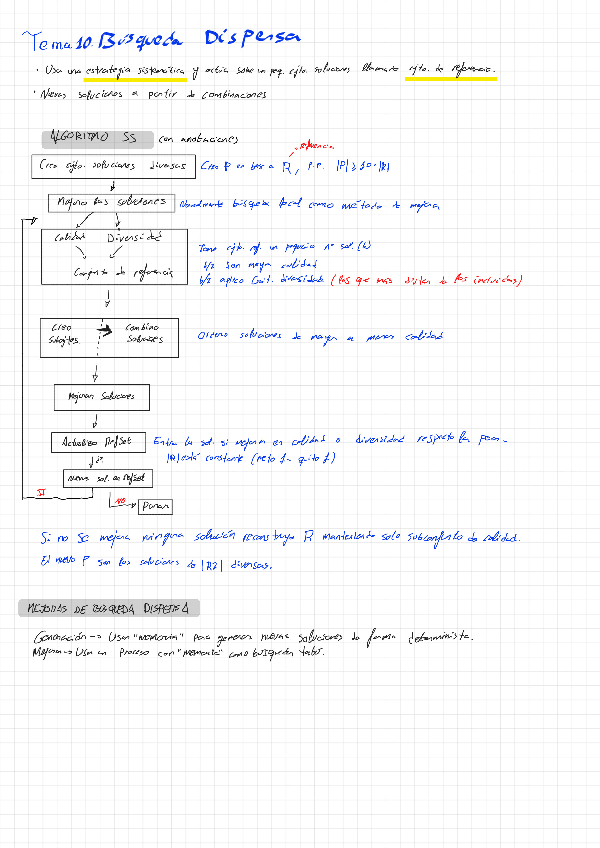 Tema 10. Búsqueda Dispersa
· Usa una estrategia sistemática y actúa sobre un peq. cjto. soluciones llamado cjto. de referencia.
· Nuevas soluciones a partir de combinaciones
ALGORITMO SS con anotaciones
referencia
Creo cjto. soluciones diversas Creo P en base a R, |P| ≥ 10·|R|
Mejoro las soluciones Normalmente búsqueda local como método de mejora
Calidad Diversidad
Conjunto de referencia
Tomo cjto. ref. un pequeño nº sol. (b)
b/2 son mayor calidad
b/2 aplico diversidad (las que más disten de las incluidas)
Creo subcjtos Combino soluciones Ordeno soluciones de mayor a menor calidad
Mejoran soluciones
Actualizo RefSet Entra la sol. si mejora en calidad o diversidad respecto la peor
|R| está constante (meto 1 - quito 1)
Nueva sol. en RefSet
SI
NO
Parar
Si no se mejora ninguna solución reconstruyo R manteniendo solo subconjunto de calidad.
El nuevo P son las soluciones de diversas.
MEJORAS DE BÚSQUEDA DISPERSA
Generación -> Usar "memoria" para generar nuevas soluciones de forma determinista.
Mejora -> Usa un proceso con "memoria" como búsqueda tabú.